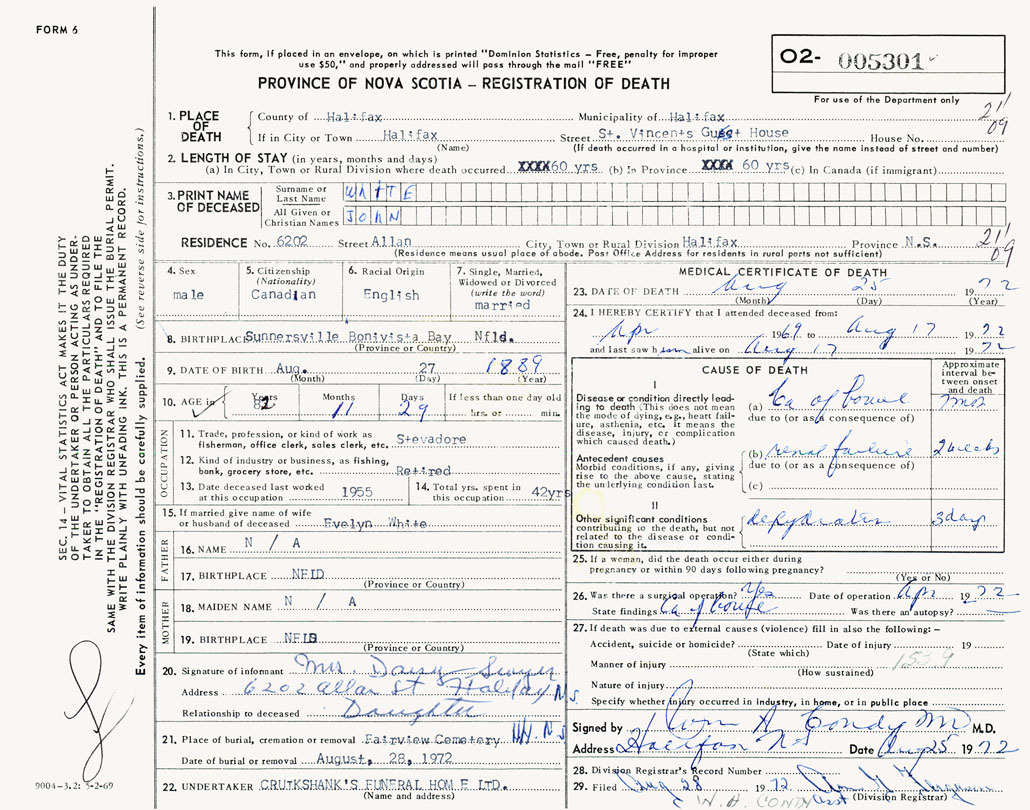 FORM 6
This form, if placed in an envelope, on which is printed "Dominion Statistics – Free, penalty for improper
use $50," and properly addressed will pass through the mail "FREE"
O2- 005301
For use of the Department only
PROVINCE OF NOVA SCOTIA – REGISTRATION OF DEATH
21/09
1. PLACE OF DEATH
County of Halifax Municipality of Halifax
If in City or Town Halifax Street St. Vincents Guest House House No.
(Name) (If death occurred in a hospital or institution, give the name instead of street and number)
2. LENGTH OF STAY (in years, months and days)
(a) In City, Town or Rural Division where death occurred XXXX 60 yrs (b) In Province XXXX 60 yrs (c) In Canada (if immigrant)
3. PRINT NAME OF DECEASED
Surname or Last Name WHITE
All Given or Christian Names JOHN
RESIDENCE No. 6202 Street Allan City, Town or Rural Division Halifax Province N.S. 21/09
(Residence means usual place of abode. Post Office Address for residents in rural parts not sufficient)
4. Sex
male
5. Citizenship
(Nationality)
Canadian
6. Racial Origin
English
7. Single, Married,
Widowed or Divorced
(write the word)
married
8. BIRTHPLACE Sunnersville Bonivista Bay Nfld.
(Province or Country)
9. DATE OF BIRTH Aug. 27 1889
(Month) (Day) (Year)
10. AGE in Years 82 Months 11 Days 29 If less than one day old
hrs. or min.
OCCUPATION
11. Trade, profession, or kind of work as
fisherman, office clerk, sales clerk, etc. Stevadore
12. Kind of industry or business, as fishing,
bank, grocery store, etc. Retired
13. Date deceased last worked
at this occupation 1955
14. Total yrs. spent in
this occupation 42yrs
15. If married give name of wife
or husband of deceased Evelyn White
FATHER
16. NAME N / A
17. BIRTHPLACE NFLD
(Province or Country)
MOTHER
18. MAIDEN NAME N / A
19. BIRTHPLACE NFLD
(Province or Country)
20. Signature of informant Mrs. Daisy
Address 6202 Allan St Halifax N S
Relationship to deceased Daughter
21. Place of burial, cremation or removal Fairview Cemetery N.S
Date of burial or removal August, 28, 1972
22. UNDERTAKER CRUIKSHANK'S FUNERAL HOME LTD.
(Name and address)
MEDICAL CERTIFICATE OF DEATH
23. DATE OF DEATH Aug 25 1972
(Month) (Day) (Year)
24. I HEREBY CERTIFY that I attended deceased from:
Apr 1969 to Aug 17 1972
and last saw him alive on Aug 17 1972
CAUSE OF DEATH
Approximate
interval be-
tween onset
and death
I
Disease or condition directly lead-
ing to death (This does not mean
the mode of dying, e.g., heart fail-
ure, asthenia, etc. it means the
disease, injury, or complication
which caused death.)
(a) Ca of bowel
due to (or as a consequence of)
7 mos
Antecedent causes
Morbid conditions, if any, giving
rise to the above cause, stating
the underlying condition last.
(b) renal failure 2 weeks
due to (or as a consequence of)
(c)
II
Other significant conditions
contributing to the death, but not
related to the disease or condi-
tion causing it.
dehydration 3 day
25. If a woman, did the death occur either during
pregnancy or within 90 days following pregnancy?
(Yes or No)
26. Was there a surgical operation? Yes Date of operation Apr 1972
State findings Ca of bowel Was there an autopsy?
27. If death was due to external causes (violence) fill in also the following: –
Accident, suicide or homicide? Date of injury 19
(State which)
1539
Manner of injury
(How sustained)
Nature of injury
Specify whether injury occurred in industry, in home, or in public place
Signed by Wm A Condy MD M.D.
Address Halifax N S Date Aug 25 1972
28. Division Registrar's Record Number
29. Filed Aug 28 1972
Asst (Division Registrar)
W. A. CONDY
SEC. 14 – VITAL STATISTICS ACT MAKES IT THE DUTY
OF THE UNDERTAKER OR PERSON ACTING AS UNDER-
TAKER TO OBTAIN ALL THE PARTICULARS REQUIRED
IN THE "REGISTRATION OF DEATH" AND TO FILE THE
SAME WITH THE DIVISION REGISTRAR WHO SHALL ISSUE THE BURIAL PERMIT.
WRITE PLAINLY WITH UNFADING INK. THIS IS A PERMANENT RECORD.
Every item of information should be carefully supplied. (See reverse side for instructions.)
9004-3.2: 5-2-69